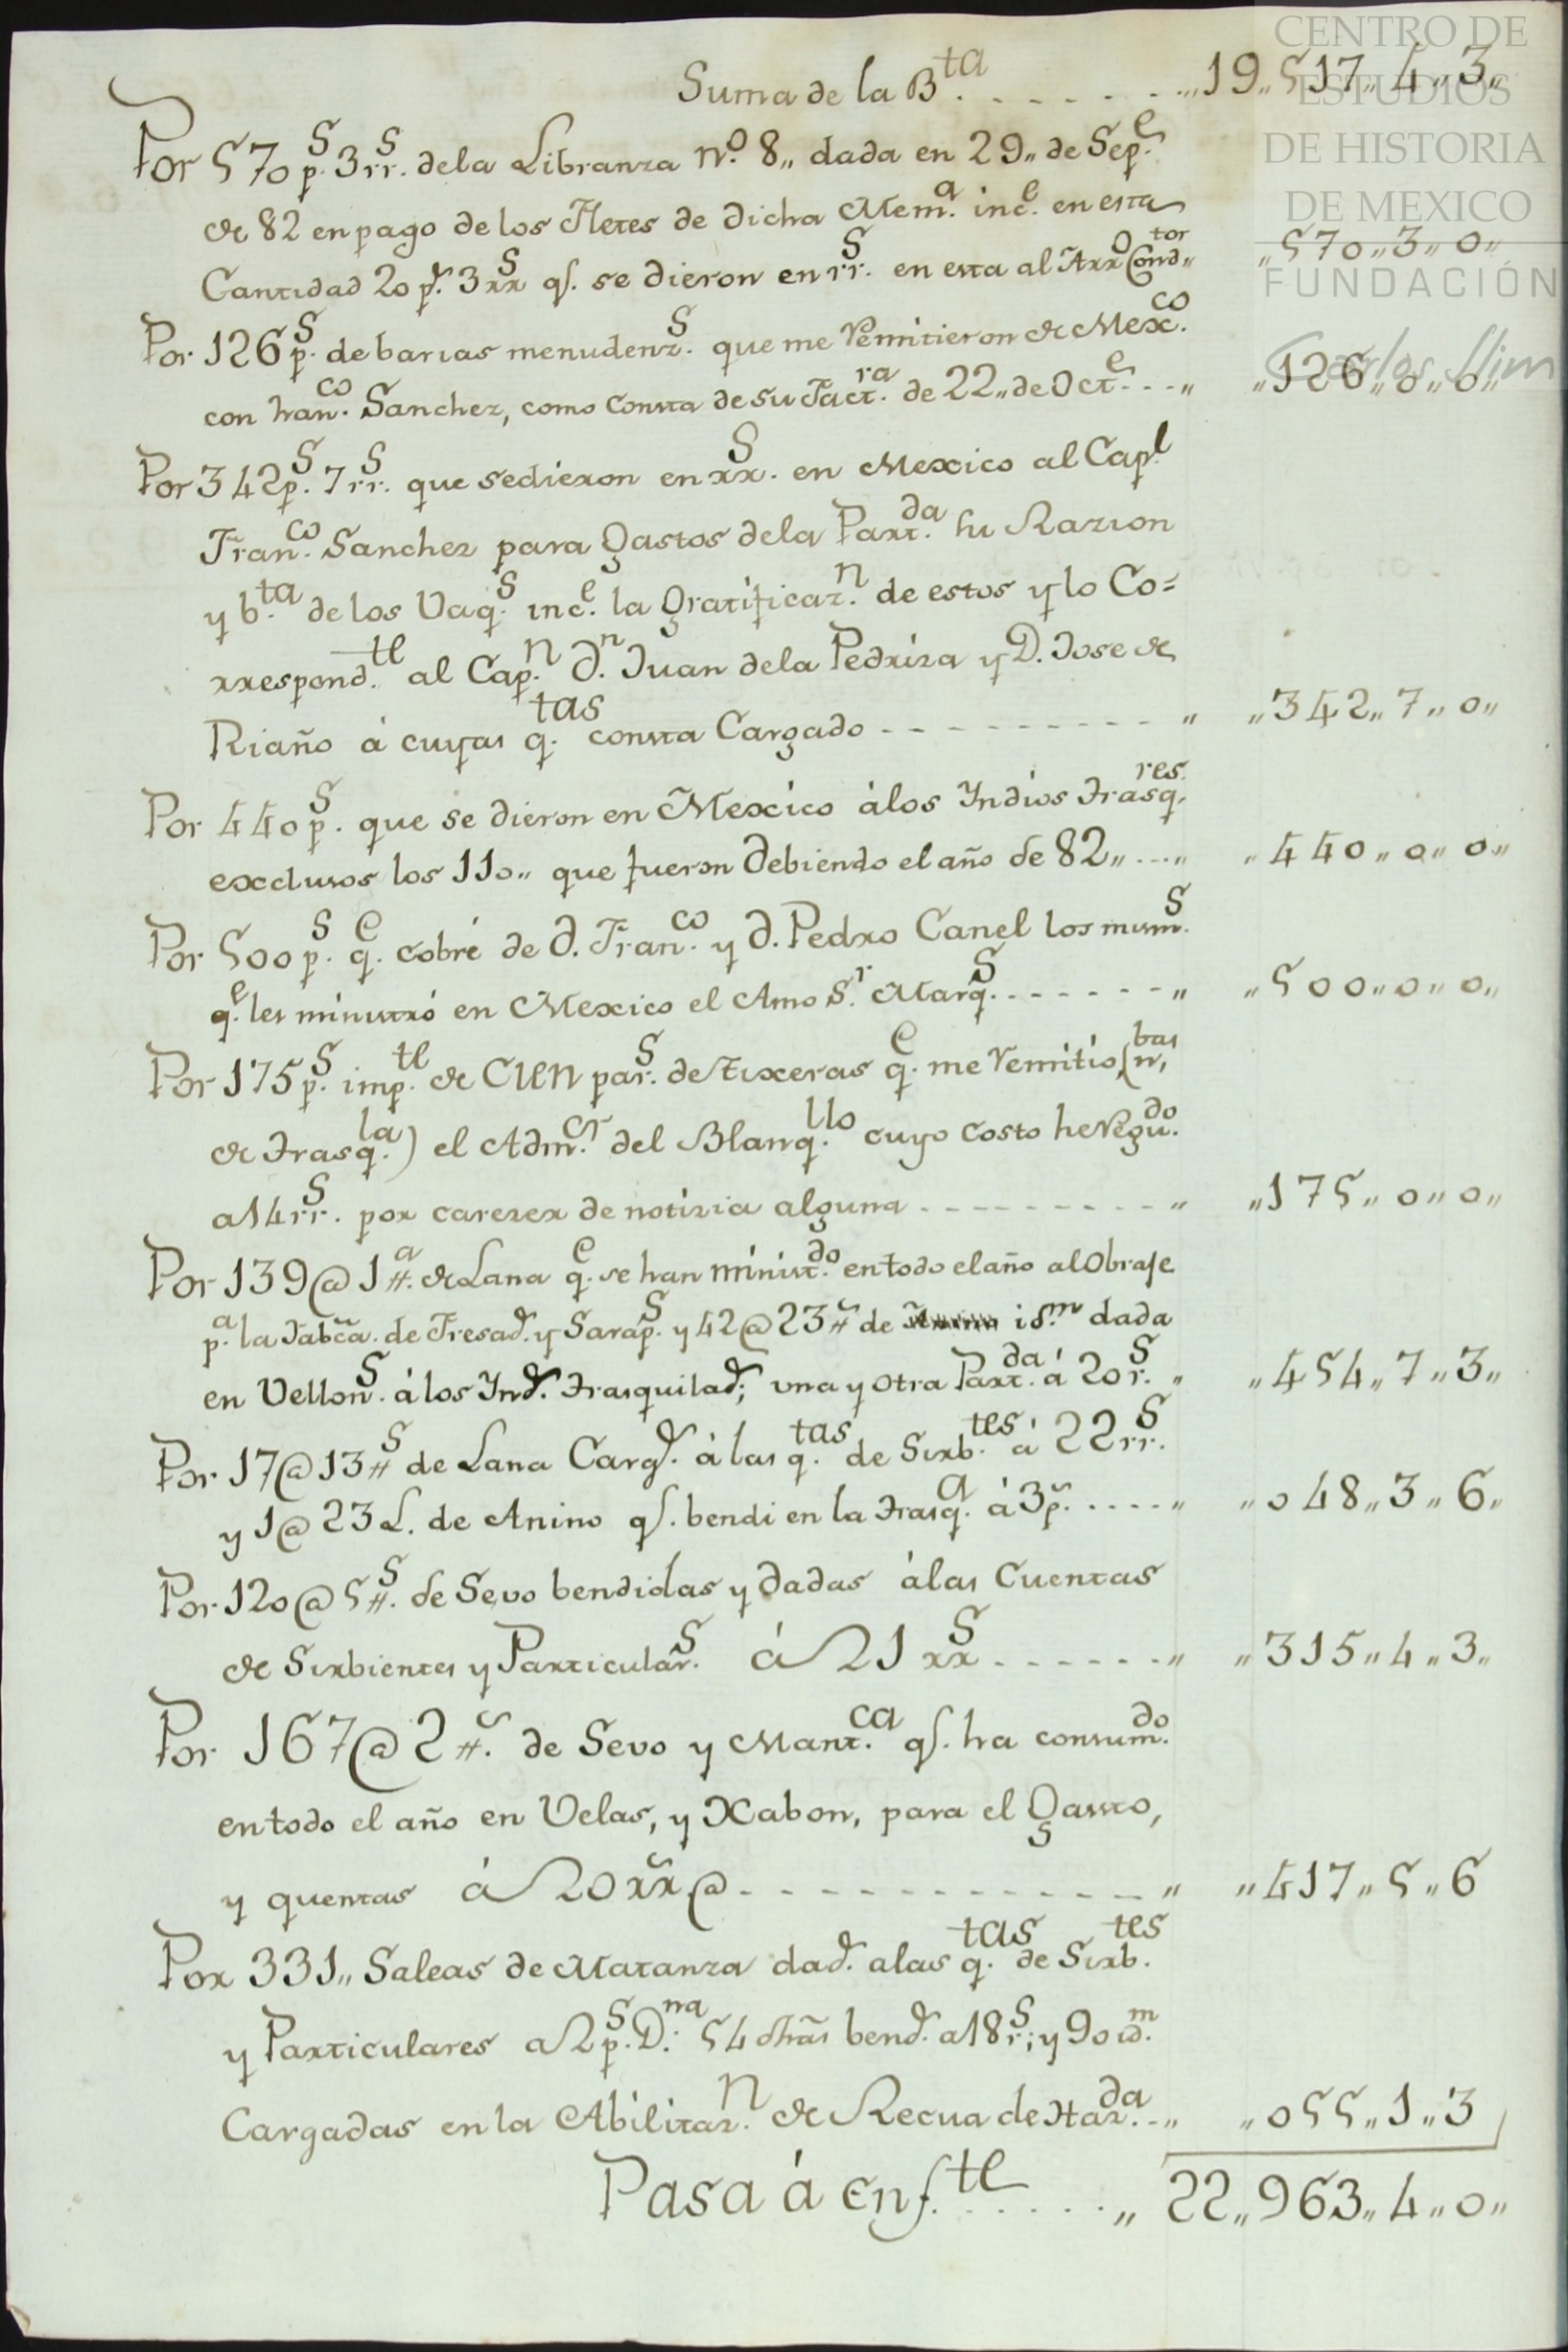 CENTRO DE
ESTUDIOS
DE HISTORIA
DE MEXICO
FUNDACIÓN
Carlos Slim
Suma de la B.ta . . . . . . . „19„517„4„3„
Por 570 p.s 3 rr.s dela Libranza n.o 8„ dada en 29„ de Sep.e
de 82 en pago de los Fletes de dicha Mem.a inc.e en esta
Cantidad 20 p.s 3 rr.s q.e se dieron en rr.s en esta al Arr.o Cond.tor „570„3„0„
Por 126 p.s de barias menudenz.s que me Remitieron de Mex.co
con Fran.co Sanchez, como consta de su Fact.ra de 22„ de Oct.e - - - „ „126„0„0„
Por 342 p.s 7 rr.s que sedieron en rr.s en Mexico al Cap.l
Fran.co Sanchez para gastos dela Part.da su Razion
y b.ta de los Vaq.s inc.e la Gratificaz.n de estos y lo Co=
rrespond.te al Cap.n d.n Juan dela Pedriza y D. Jose de
Riaño á cuyas q.tas consta Cargado - - - - - - - - - - „ „342„7„0„
Por 440 p.s que se dieron en Mexico álos Yndios trasq.res
exclusos los 110„ que fueron debiendo el año de 82„ ... „ „440„0„0„
Por 500 p.s q.e cobré de d. Fran.co y d. Pedro Canel los mism.s
q.e les ministró en Mexico el Amo S.r Marq.s - - - - - - - „ „500„0„0„
Por 175 p.s imp.te de CIEN par.s de tixeras q.e me Remitio, (n.bas
de trasq.la) el Adm.or del Blanq.llo cuyo costo he Regu.do
a 14 rr.s por carezer de notizia alguna - - - - - - - - - „ „175„0„0„
Por 139@1 #.a de Lana q.e se han minist.do en todo el año al Obraje
p.a la Fabca. de Fresad.s y Sarap.s y 42@23 # de i S.m dada
en Vellon.s á los Ynd.s trasquilad.s; una y otra Part.da á 20 r.s „ „454„7„3„
Por 17@13 #.s de Lana Carg.s á las q.tas de Sirb.tes á 22 rr.s
y 1@23 L. de Anino q.e bendi en la trasq.a á 3 p.s . . . . - „ „048„3„6„
Por 120@5 #.s de Sevo bendidas y dadas álas Cuentas
de Sirbientes y Particular.s á 21 rr.s - - - - - - „ „315„4„3„
Por 167@2 #.s de Sevo y Mant.ca q.e ha consum.do
entodo el año en Velas, y Xabon, para el Gasto,
y quentas á 20 rr.s @ - - - - - - - - - - - - - „ „417„5„6
Por 331„ Saleas de Matanza dad.s alas q.tas de Sirb.tes
y Particulares a 2 p.s D.na 54 dhãs bend.s a 18 r.s; y 90 id.m
Cargadas en la Abilitaz.n de Recua de Haz.da - „ „055„1„3
Pasa á enf.te . . . . . . „ 22„963„4„0„